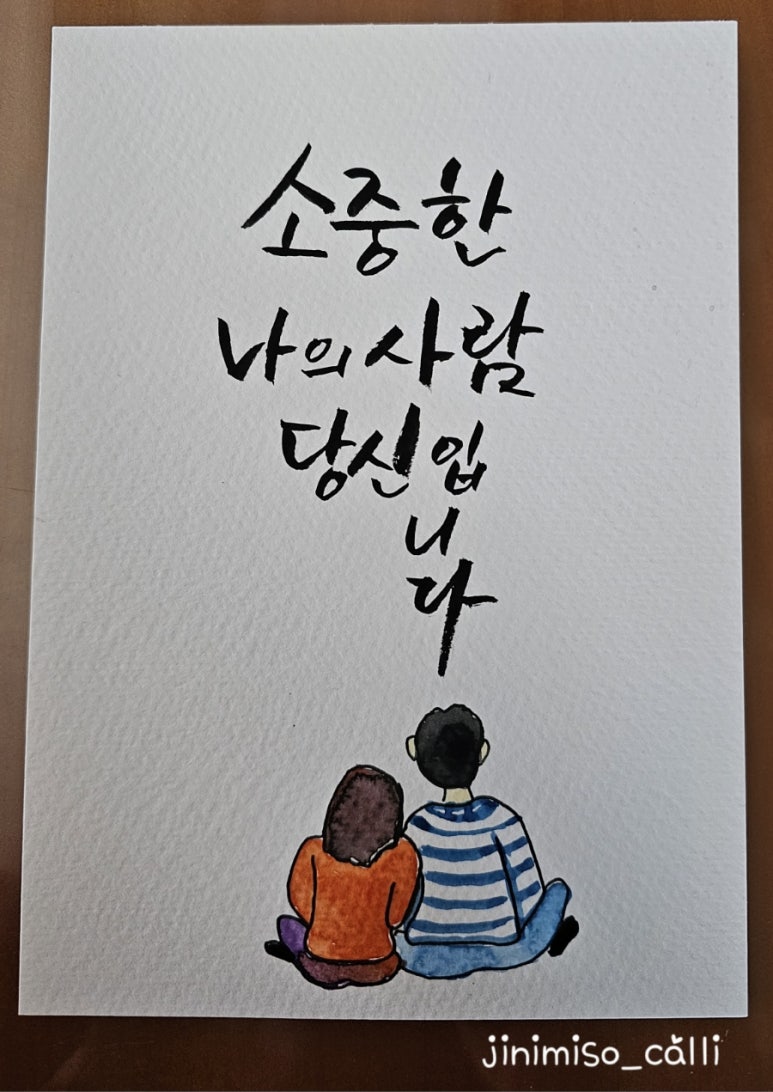 소중한
나의 사람
당신입
니
다
jinimiso_călli